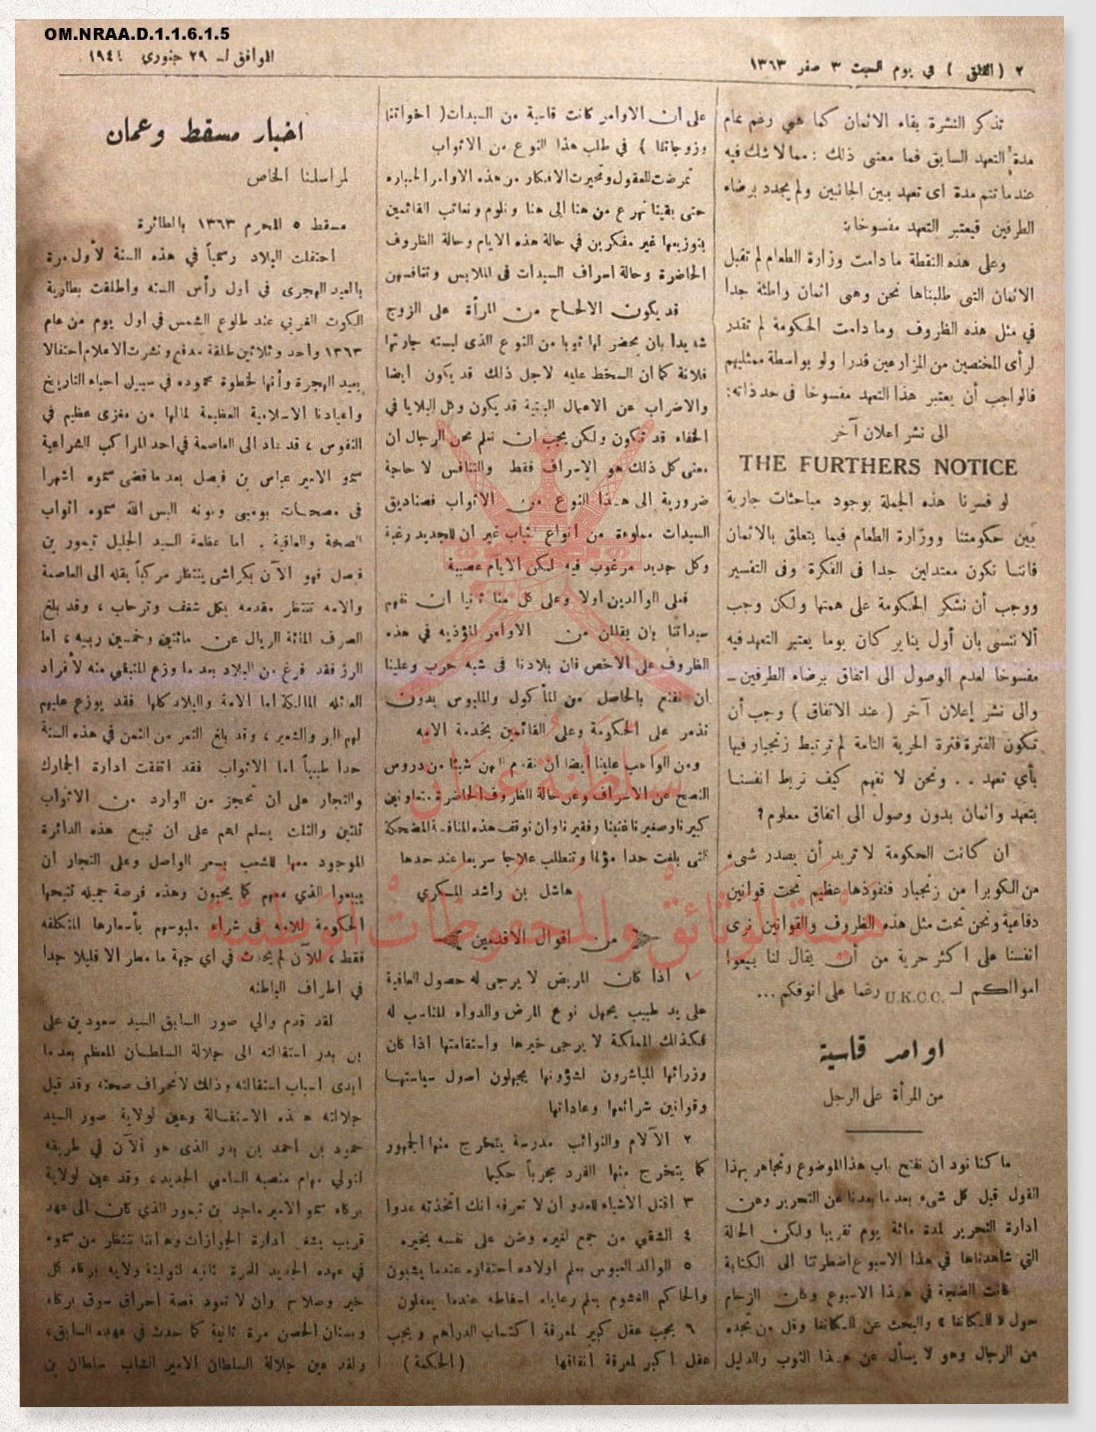 OM.NRAA.D.1.1.6.1.5
٢ ( الفلق ) في يوم السبت ٣ صفر ١٣٦٣
الموافق لـ ٢٩ جنوري ١٩٤٤
تذكر النشرة بقاء الاثمان كما هي رغم تمام
مدة التعهد السابق فما معنى ذلك : مما لا شك فيه
عندما تتم مدة اى تعهد بين الجانبين ولم يجدد برضاء
الطرفين فيعتبر التعهد مفسوخا:
وعلى هذه النقطة ما دامت وزارة الطعام لم تقبل
الاثمان التى طلبناها نحن وهى اثمان واطئة جدا
في مثل هذه الظروف وما دامت الحكومة لم تقدر
لرأى المختصين من المزارعين قدرا ولو بواسطة ممثليهم
فالواجب أن يعتبر هذا التعهد مفسوخا فى حد ذاته:
الى نشر اعلان آخر
THE FURTHERS NOTICE
لو فسرنا هذه الجملة بوجود مباحثات جارية
بين حكومتنا ووزارة الطعام فيما يتعلق بالاثمان
فاننا نكون معتدلين جدا فى الفكرة وفى التفسير
ووجب أن نشكر الحكومة على همتها ولكن وجب
ألا ننسى بان أول يناير كان يوما يعتبر التعهد فيه
مفسوخا لعدم الوصول الى اتفاق برضاء الطرفين ـ
والى نشر إعلان آخر ( عند الاتفاق ) وجب أن
تكون الفترة فترة الحرية التامة لم ترتبط زنجبار فيها
بأي تعهد . . ونحن لا نفهم كيف نربط انفسنا
بتعهد واثمان بدون وصول الى اتفاق معلوم ؟
ان كانت الحكومة لا تريد أن يصدر شىء
من الكوبرا من زنجبار فنفوذها عظيم تحت قوانين
دفاعية ونحن تحت مثل هذه الظروف والقوانين نرى
انفسنا على اكثر حرية من أن يقال لنا بيعوا
اموالكم لـ U.K.C.C. رغما على انوفكم ...
اوامر قاسية
من المرأة على الرجل
ما كنا نود ان نفتح باب هذا الموضوع ونجاهر بهذا
القول قبل كل شىء بعد ما بعدنا عن التحرير وعن
ادارة التحرير لمدة مائة يوم تقريبا ولكن الحالة
التي شاهدناها في هذا الاسبوع اضطرتنا الى الكتابة
كانت الضجة في هذا الاسبوع وكان الزحام
حول « للكانغا » والبحث عن للكانغا وقل من تجده
من الرجال وهو لا يسأل عن هذا الثوب والدليل
على ان الاوامر كانت قاسية من السيدات ( اخواتنا
وزوجاتنا ) في طلب هذا النوع من الاثواب
تمرضت للعقول وتحيرت الافكار من هذه الاوامر الجباره
حتى بقينا نهرع من هنا الى هنا ونلوم ونعاتب القائمين
بتوزيعها غير مفكرين في حالة هذه الايام وحالة الظروف
الحاضرة وحالة اسراف السيدات فى الملابس وتنافسهن
قد يكون الالحاح من المرأة على الزوج
شديدا بان يحضر لها ثوبا من النوع الذى لبسته جارتها
فلانة كما ان السخط عليه لاجل ذلك قد يكون ايضا
والاضراب عن الاعمال البيتية قد يكون وكل البلايا في
الخفاء قد تكون ولكن يجب ان نعلم نحن الرجال ان
معنى كل ذلك هو الاسراف فقط والتنافس لا حاجة
ضرورية الى هذا النوع من الاثواب فصناديق
السيدات مملوءة من انواع الثياب غير ان للجديد رغبة
وكل جديد مرغوب فيه لكن الايام عصيبة
فعلى الوالدين اولا وعلى كل منا ثانيا ان نفهم
سيداتنا بان يقللن من الاوامر المؤذيه في هذه
الظروف على الاخص فان بلادنا فى شبه حرب وعلينا
ان نقنع بالحاصل من المأكول والملبوس بدون
تذمر على الحكومة وعلى القائمين بخدمة الامه
ومن الواجب علينا ايضا ان نقدم لهن شيئا من دروس
النصح عن الاسراف وعن حالة الظروف الحاضرة متعاونين
كبيرنا وصغيرنا غنينا وفقيرنا وان نوقف هذه المنافسة المضحكة
التى بلغت حدا مؤلما وتتطلب علاجا سريعا عند حدها
هاشل بن راشد المسكري
من اقوال الاقدمين
١ اذا كان المريض لا يرجى له حصول العافية
على يد طبيب يجهل نوع المرض والدواء المناسب له
فكذلك المملكة لا يرجى خيرها واستقامتها اذا كان
وزرائها المباشرون لشؤونها يجهلون اصول سياستها
وقوانين شرائعها وعاداتها
٢ الآلام والنوائب مدرسة يتخرج منها الجمهور
كما يتخرج منها الفرد مجرباً حكيما
٣ اقتل الاشياء للعدو ان لا تعرفه انك اتخذته عدوا
٤ الشقي من جمع لغيره وضن على نفسه بخيره
٥ الوالد العبوس يعلم اولاده احتقاره عندما يشبون
والحاكم الغشوم يعلم رعاياه اسقاطه عندما يعقلون
٦ يجب عقل كبير لمعرفة اكتساب الدراهم ويجب
عقل اكبر لمعرفة انفاقها ( الحكمة )
اخبار مسقط وعمان
لمراسلنا الخاص
مسقط ٥ المحرم ١٣٦٣ بالطائرة
احتفلت البلاد رسمياً في هذه السنة لأول مرة
بالعيد الهجرى في اول رأس السنه واطلقت بطارية
الكوت الغربي عند طلوع الشمس في اول يوم من عام
١٣٦٣ واحد وثلاثين طلقة مدفع ونشرت الاعلام احتفالا
بعيد الهجرة وأنها لخطوة محموده في سبيل احياء التاريخ
واعيادنا الاسلامية العظيمة لمالها من مغزى عظيم في
النفوس ، قد عاد الى العاصمة في احد المراكب الشراعية
سمو الامير عباس بن فيصل بعد ما قضى سموه اشهرا
فى مصحات بومبى وبونه البس الله سموه اثواب
الصحة والعافية . اما عظمة السيد الجليل تيمور بن
فيصل فهو الآن بكراشى ينتظر مركباً يقله الى العاصمة
والامه تنتظر مقدمه بكل شغف وترحاب ، وقد بلغ
الصرف المائة الريال عن مائتين وخمسين ربيه ، اما
الرز فقد فرغ من البلاد بعد ما وزع المتبقي منه لأفراد
العائله المالكة اما الامة والبلاد كلها فقد يوزع عليهم
لهم البر والشعير ، وقد بلغ التمر من الثمن في هذه السنة
حدا طيباً اما الاثواب فقد اتفقت ادارة الجمارك
والتجار على ان تحجز من الوارد من الاثواب
ثلثين والثلث يسلم لهم على ان تبيع هذه الدائرة
الموجود معها للشعب بسعر الواصل وعلى التجار ان
يبيعوا الذي معهم كما يحبون وهذه فرصة جميله تتيحها
الحكومة للامه فى شراء ملبوسهم بأسعارها المتكلفه
فقط ، للآن لم يحدث في أي جهة ما مطر الا قليلا جدا
في اطراف الباطنه
لقد قدم والي صور السابق السيد سعود بن على
بن بدر استقالته الى جلالة السلطان المعظم بعد ما
ابدى اسباب استقالته وذلك لانحراف صحته وقد قبل
جلالته هذه الاستقالة وعين لولاية صور السيد
حمود بن احمد بن بدر الذى هو الآن في طريقه
لتولي مهام منصبه السامي الجديد ، وقد عين لولاية
بركاه سمو الامير ماجد بن تيمور الذي كان الى عهد
قريب يشغل ادارة الجوازات وهاننا ننتظر من سموه
في عهده الجديد للمرة ثانيه لتوليته ولاية بركاه كل
خير وصلاح وان لا تعود قصة احراق سوق بركاه
وبستان الحصن مرة ثانية كما حدث في عهده السابق ،
ولقد عين جلالة السلطان الامير الشاب سلطان بن
سلطنة عُمان
هيئة الوثائق والمحفوظات الوطنية